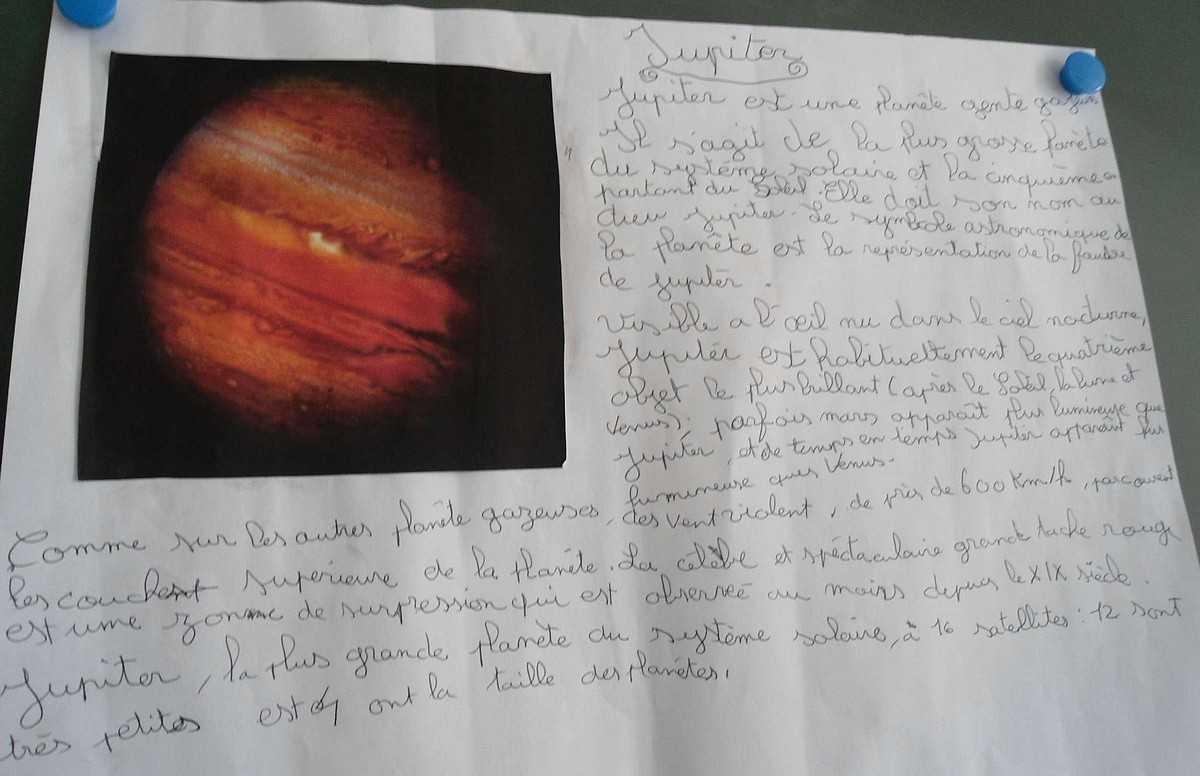 Jupiter
Jupiter est une planète gente gazeus
Il s'agit de la plus grosse panète
du système solaire et la cinquième en
partant du Soleil. Elle doit son nom au
dieu Jupiter. Le symbole astronomique de
la planète est la représentation de la foudre
de Jupiter.
Visible a l'œil nu dans le ciel nocturne,
Jupiter est habituellement le quatrième
objet le plus brillant (après le Soleil, la lune et
Venus); parfois mars apparaît plus lumineuse que
Jupiter, et de temps en temps Jupiter apparaît plus
lumineuse ques Venus.
Comme sur les autres planète gazeuses, des vent violent, de près de 600 Km/h, parcourent
les couchest superieure de la planète. La célèbe et spéctaculaire grande tache rouge
est ume zonme de surpression qui est observée au moins depuis le XIX siècle.
Jupiter, la plus grande planète du système solaire, à 16 satellites : 12 sont
très petites est 4 ont la taille des planètes.